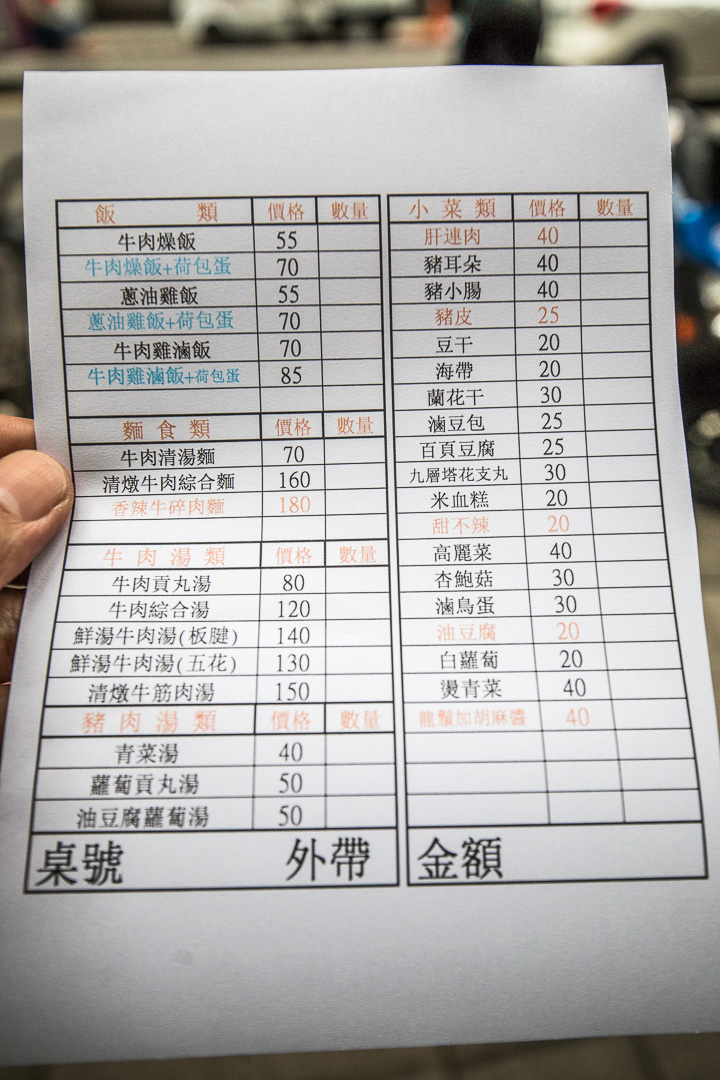 飯 類 價格 數量
牛肉燥飯 55
牛肉燥飯+荷包蛋 70
蔥油雞飯 55
蔥油雞飯+荷包蛋 70
牛肉雞滷飯 70
牛肉雞滷飯+荷包蛋 85
麵食類 價格 數量
牛肉清湯麵 70
清燉牛肉綜合麵 160
香辣牛碎肉麵 180
牛肉湯類 價格 數量
牛肉貢丸湯 80
牛肉綜合湯 120
鮮湯牛肉湯(板腱) 140
鮮湯牛肉湯(五花) 130
清燉牛筋肉湯 150
豬肉湯類 價格 數量
青菜湯 40
蘿蔔貢丸湯 50
油豆腐蘿蔔湯 50
桌號 外帶
小菜類 價格 數量
肝連肉 40
豬耳朵 40
豬小腸 40
豬皮 25
豆干 20
海帶 20
蘭花干 30
滷豆包 25
百頁豆腐 25
九層塔花支丸 30
米血糕 20
甜不辣 20
高麗菜 40
杏鮑菇 30
滷鳥蛋 30
油豆腐 20
白蘿蔔 20
燙青菜 40
龍鬚加胡麻醬 40
金額